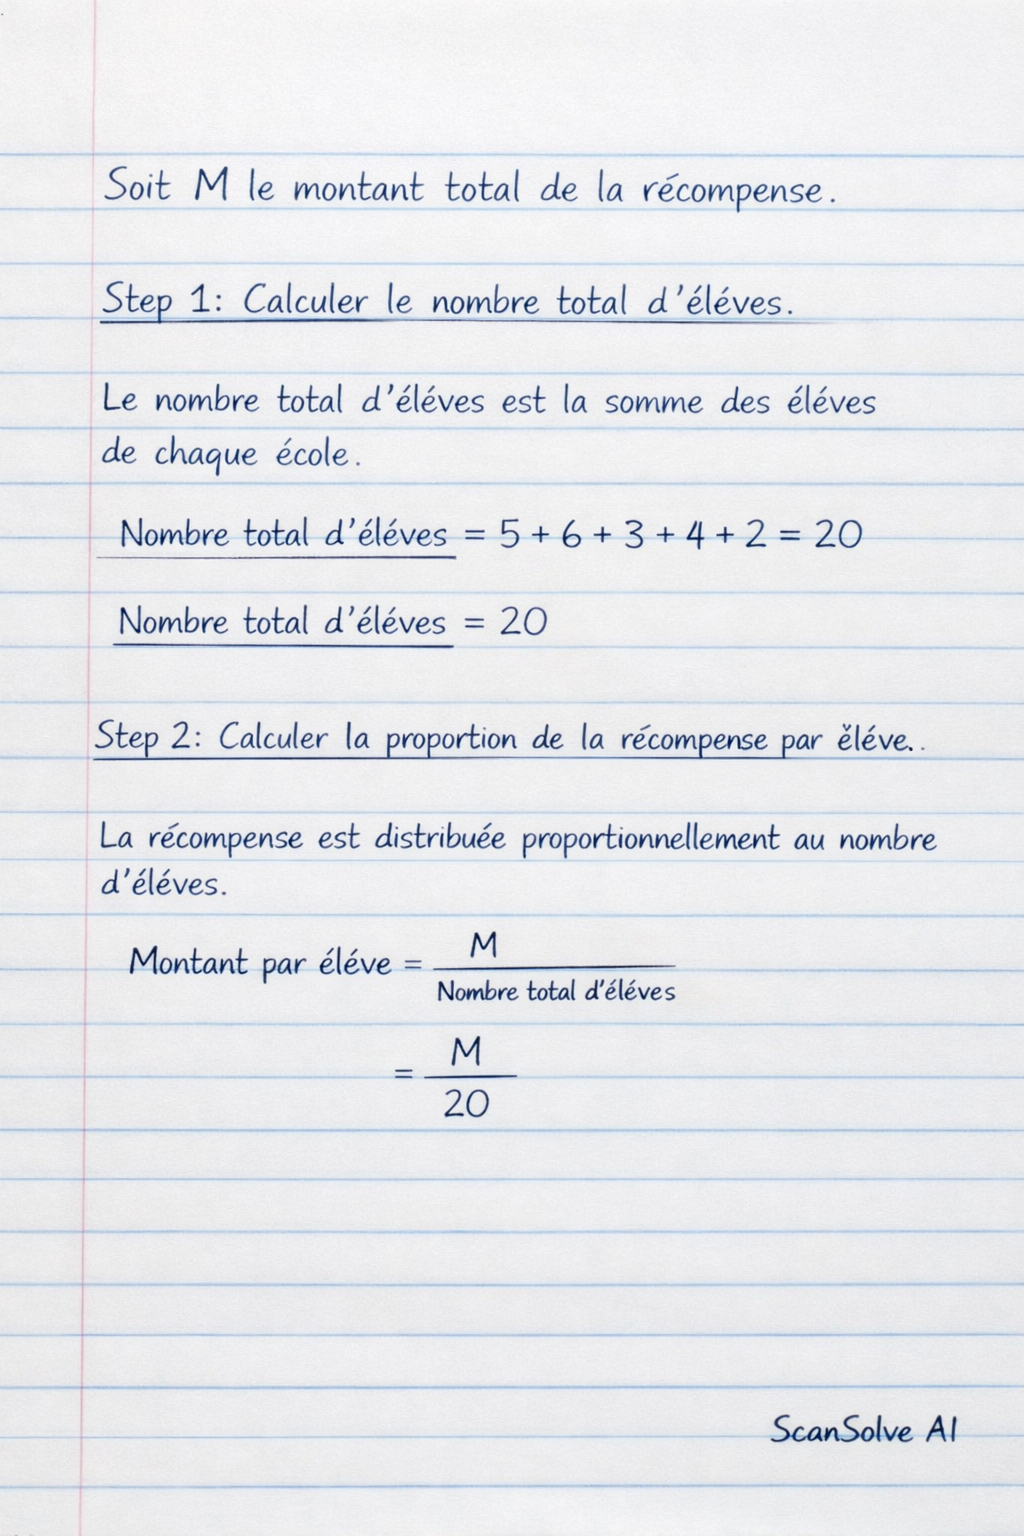 Soit M le montant total de la récompense.
Step 1: Calculer le nombre total d'éléves.
Le nombre total d'éléves est la somme des éléves
de chaque école.
Nombre total d'éléves = 5 + 6 + 3 + 4 + 2 = 20
Nombre total d'éléves = 20
Step 2: Calculer la proportion de la récompense par ěléve..
La récompense est distribuée proportionnellement au nombre
d'éléves.
Montant par éléve = M / Nombre total d'éléves
= M / 20
ScanSolve AI